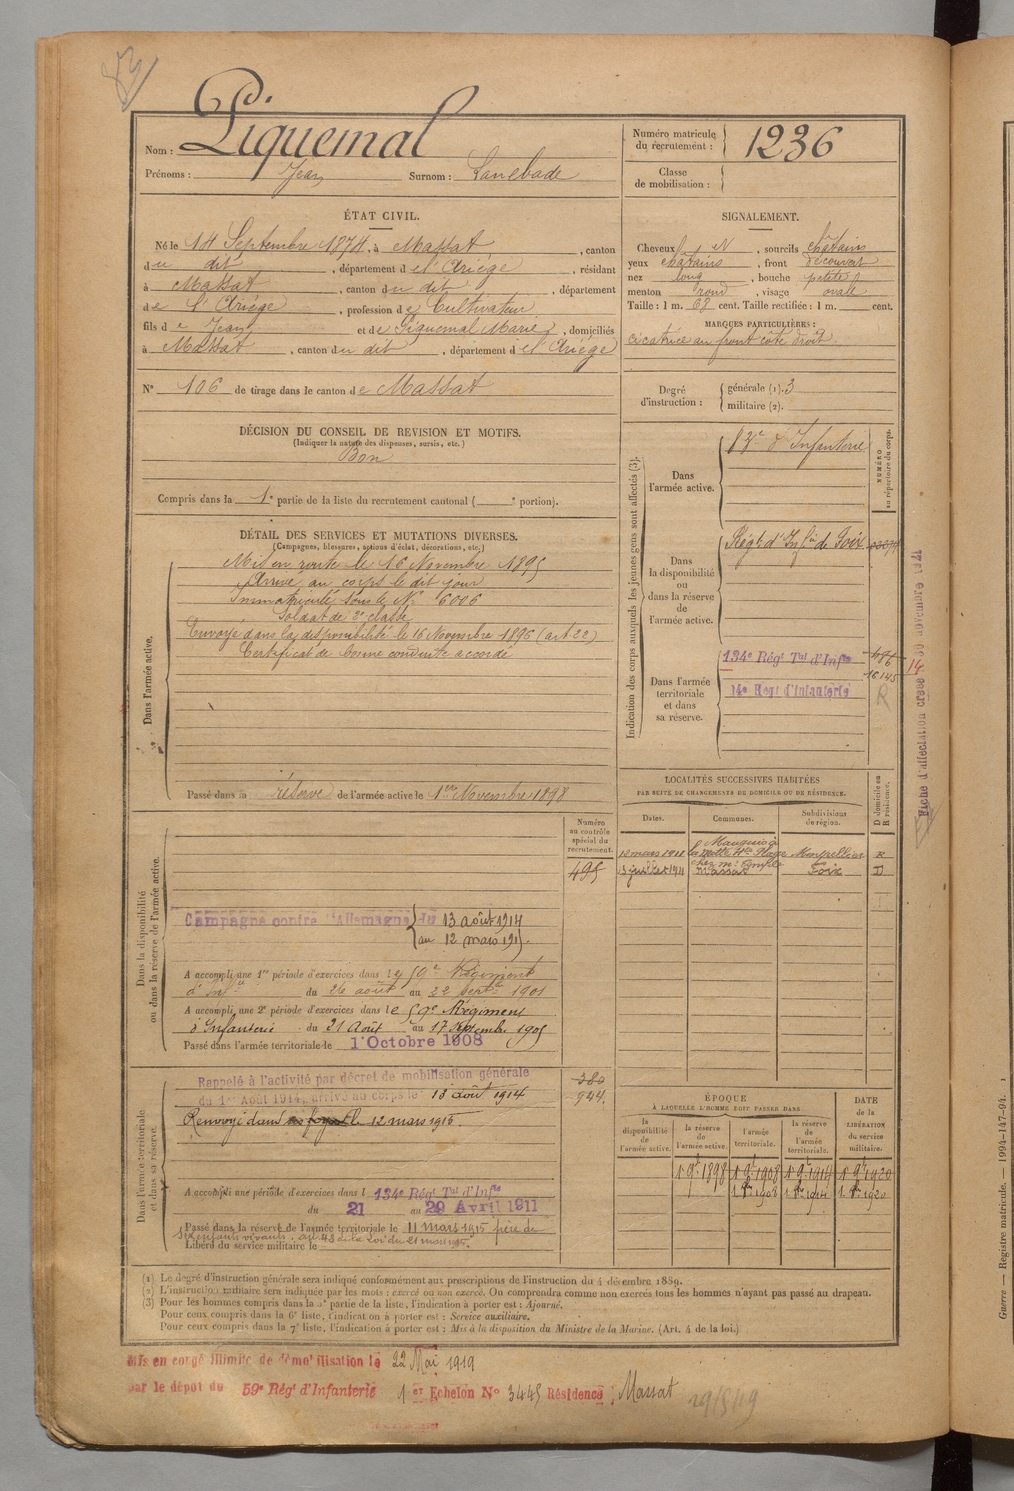 Piquemal
Nom :
Prénoms : Jean Surnom : Lanebade
Numéro matricule
du recrutement : 1236
Classe
de mobilisation :
ÉTAT CIVIL.
Né le 14 Septembre 1874, à Massat, canton
du dit, département de l'Ariège, résidant
à Massat, canton du dit, département
de l'Ariège, profession de Cultivateur
fils de Jean et de Piquemal Marie, domiciliés
à Massat, canton du dit, département de l'Ariège
N° 106 de tirage dans le canton de Massat
SIGNALEMENT.
Cheveux ch N, sourcils châtains
yeux châtains, front découvert
nez long, bouche petite
menton rond, visage ovale
Taille : 1 m. 68 cent. Taille rectifiée : 1 m. cent.
MARQUES PARTICULIÈRES :
cicatrice au front côté droit.
Degré
d'instruction :
générale (1). 3
militaire (2).
DÉCISION DU CONSEIL DE REVISION ET MOTIFS.
(Indiquer la nature des dispenses, sursis, etc.)
Bon
Compris dans la 1e partie de la liste du recrutement cantonal ( e portion).
DÉTAIL DES SERVICES ET MUTATIONS DIVERSES.
(Campagnes, blessures, actions d'éclat, décorations, etc.)
Dans l'armée active.
Mis en route le 16 Novembre 1895
Arrivé au corps le dit jour
Immatriculé sous le N° 6006
Soldat de 2e classe
Envoyé dans la disponibilité le 16 Novembre 1896 (art 22)
Certificat de bonne conduite accordé
Passé dans la réserve de l'armée active le 1er Novembre 1898
Indication des corps auxquels les jeunes gens sont affectés (3).
NUMÉRO
au répertoire du corps.
Dans
l'armée active.
83e d'Infanterie
Dans
la disponibilité
ou
dans la réserve
de
l'armée active.
Régt d'Infie de Foix
Dans l'armée
territoriale
et dans
sa réserve.
134e Régt Tal d'Infie
14e Regt d'Infanterie
16145
R
14
Fiche d'affectation créée
LOCALITÉS SUCCESSIVES HABITÉES
PAR SUITE DE CHANGEMENTS DE DOMICILE OU DE RÉSIDENCE.
Dates. Communes. Subdivisions
de région.
D domicile ou
R résidence.
12 mars 1911 Mauguio à
chez Mr Montpellier R
13 juillet 1911 Massat Foix D
Dans la disponibilité
ou dans la réserve de l'armée active.
Numéro
au contrôle
spécial du
recrutement.
495
Campagne contre l'Allemagne du 13 août 1914
au 12 mars 1915.
A accompli une 1re période d'exercices dans le 59e Régiment
d'Infie du 26 août au 22 septbre 1901
A accompli une 2e période d'exercices dans le 59e Régiment
d'Infanterie du 21 Août au 17 Septembre 1905
Passé dans l'armée territoriale le 1 Octobre 1908
Dans l'armée territoriale
et dans sa réserve.
Rappelé à l'activité par décret de mobilisation générale
du 1er Août 1914, arrivé au corps le 13 août 1914
380
944.
Renvoyé dans ses foyers le 12 mars 1915.
A accompli une période d'exercices dans l 134e Régt Tal d'Infie
du 21 au 29 Avril 1911
Passé dans la réserve de l'armée territoriale le 11 mars 1915 père de
enfants vivants. art 48 de la Loi du 21 mars 1905.
Libéré du service militaire le
ÉPOQUE
À LAQUELLE L'HOMME DOIT PASSER DANS
la
disponibilité
de
l'armée active.
la réserve
de
l'armée active.
l'armée
territoriale.
la réserve
de
l'armée
territoriale.
DATE
de la
LIBÉRATION
du service
militaire.
1 9bre 1898 1 9bre 1908 1 9bre 1914 1 9bre 1920
1 8bre 1908 1 8bre 1914 1 8bre 1920
(1) Le degré d'instruction générale sera indiqué conformément aux prescriptions de l'instruction du 4 décembre 1889.
(2) L'instruction militaire sera indiquée par les mots : exercé ou non exercé. On comprendra comme non exercés tous les hommes n'ayant pas passé au drapeau.
(3) Pour les hommes compris dans la 2e partie de la liste, l'indication à porter est : Ajourné.
Pour ceux compris dans la 6e liste, l'indication à porter est : Service auxiliaire.
Pour ceux compris dans la 7e liste, l'indication à porter est : Mis à la disposition du Ministre de la Marine. (Art. 4 de la loi.)
Mis en congé illimité de démobilisation le 22 Mai 1919
par le dépôt du 59e Régt d'Infanterie 1er Echelon N° 3445 Résidence, Massat
29/5/19
Guerre — Registre matricule. — 1994-147-94. 1